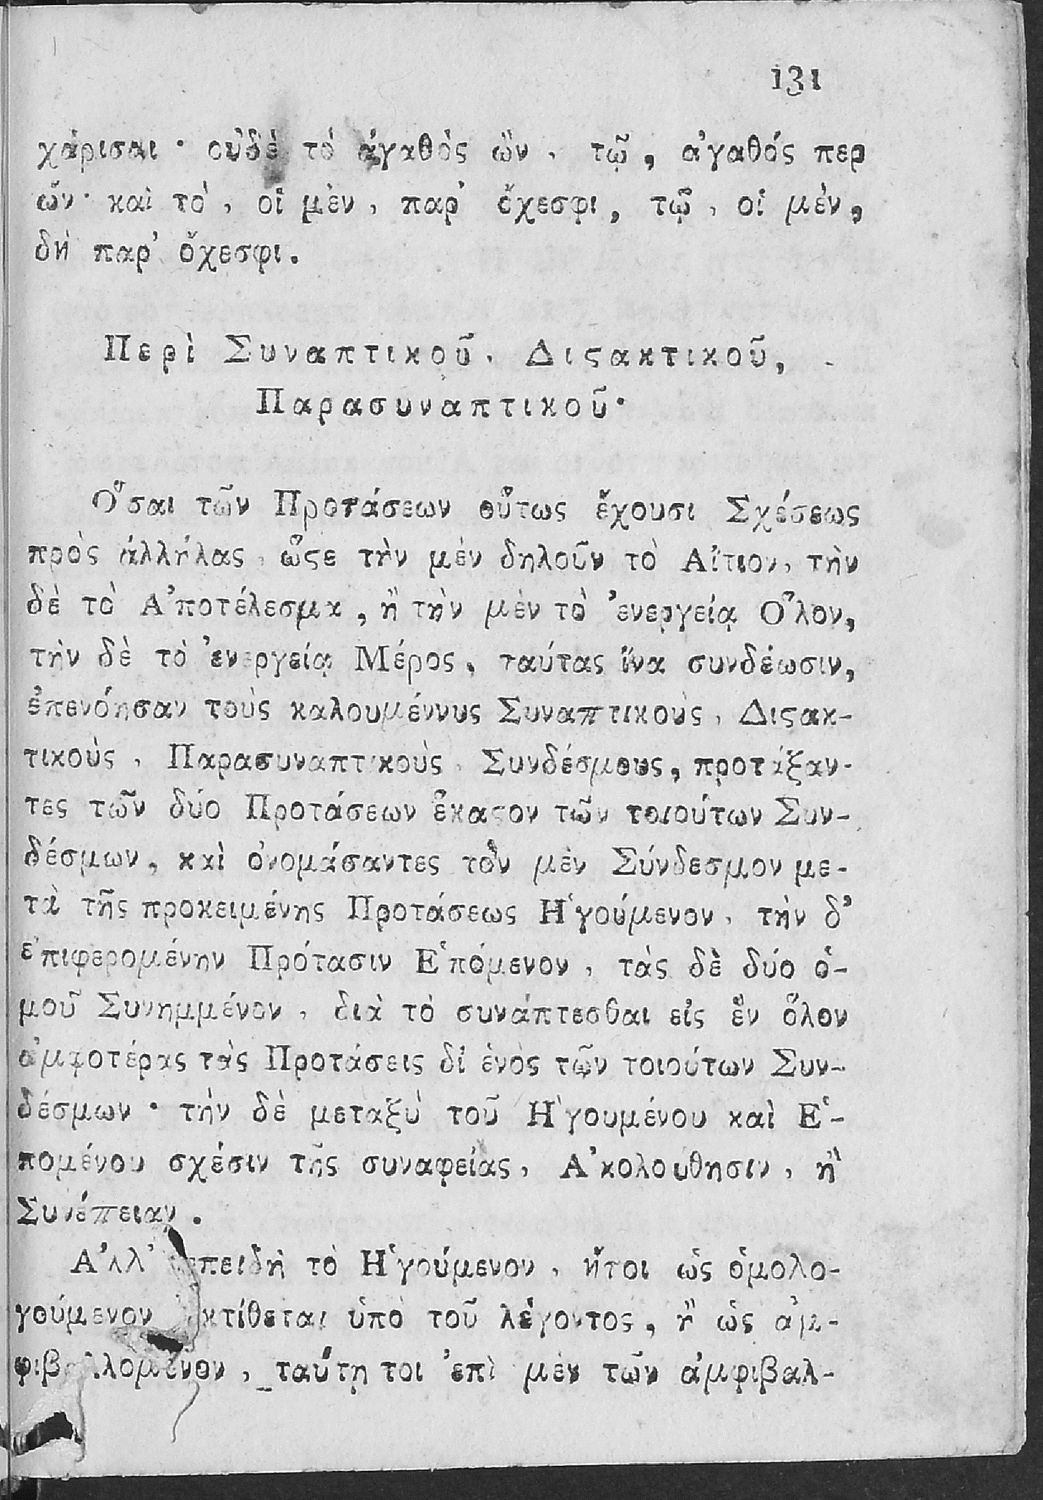 131
χάρισαι · οὐδὲ τὸ ἀγαθὸς ὢν, τῷ, ἀγαθός περ
ὤν· καὶ τὸ, οἱ μὲν, παρ' ὄχεσφι, τῷ, οἱ μὲν,
δὴ παρ' ὄχεσφι.
Περὶ Συναπτικοῦ, Διϛακτικοῦ,
Παρασυναπτικοῦ·
Ὅσαι τῶν Προτάσεων οὕτως ἔχουσι Σχέσεως
πρὸς ἀλλήλας, ὥϛε τὴν μὲν δηλοῦν τὸ Αἴτιον, τὴν
δὲ τὸ Ἀποτέλεσμα, ἢ τὴν μὲν τὸ ἐνεργείᾳ Ὅλον,
τὴν δὲ τὸ ἐνεργείᾳ Μέρος, ταύτας ἵνα συνδέωσιν,
ἐπενόησαν τοὺς καλουμέννυς Συναπτικοὺς, Διϛακ-
τικοὺς, Παρασυναπτικοὺς Συνδέσμους, προτάξαν-
τες τῶν δύο Προτάσεων ἕκαϛον τῶν τοιούτων Συν-
δέσμων, καὶ ὀνομάσαντες τὸν μὲν Σύνδεσμον με-
τὰ τῆς προκειμένης Προτάσεως Ἡγούμενον, τὴν δ'
ἐπιφερομένην Πρότασιν Ἑπόμενον, τὰς δὲ δύο ὁ-
μοῦ Συνημμένον, διὰ τὸ συνάπτεσθαι εἰς ἓν ὅλον
ἀμφοτέρας τὰς Προτάσεις δἰ ἑνὸς τῶν τοιούτων Συν-
δέσμων · τὴν δὲ μεταξὺ τοῦ Ἡγουμένου καὶ Ἑ-
πομένου σχέσιν τῆς συναφείας, Ἀκολουθησιν, ἢ
Συνέπειαν.
Ἀλλ' ἐπειδὴ τὸ Ἡγούμενον, ἤτοι ὡς ὁμολο-
γούμενον ἐκτίθεται ὑπὸ τοῦ λέγοντος, ἢ ὡς ἀμ-
φιβαλλομένον, ταύτῃ τοι ἐπὶ μὲν τῶν ἀμφιβαλ-